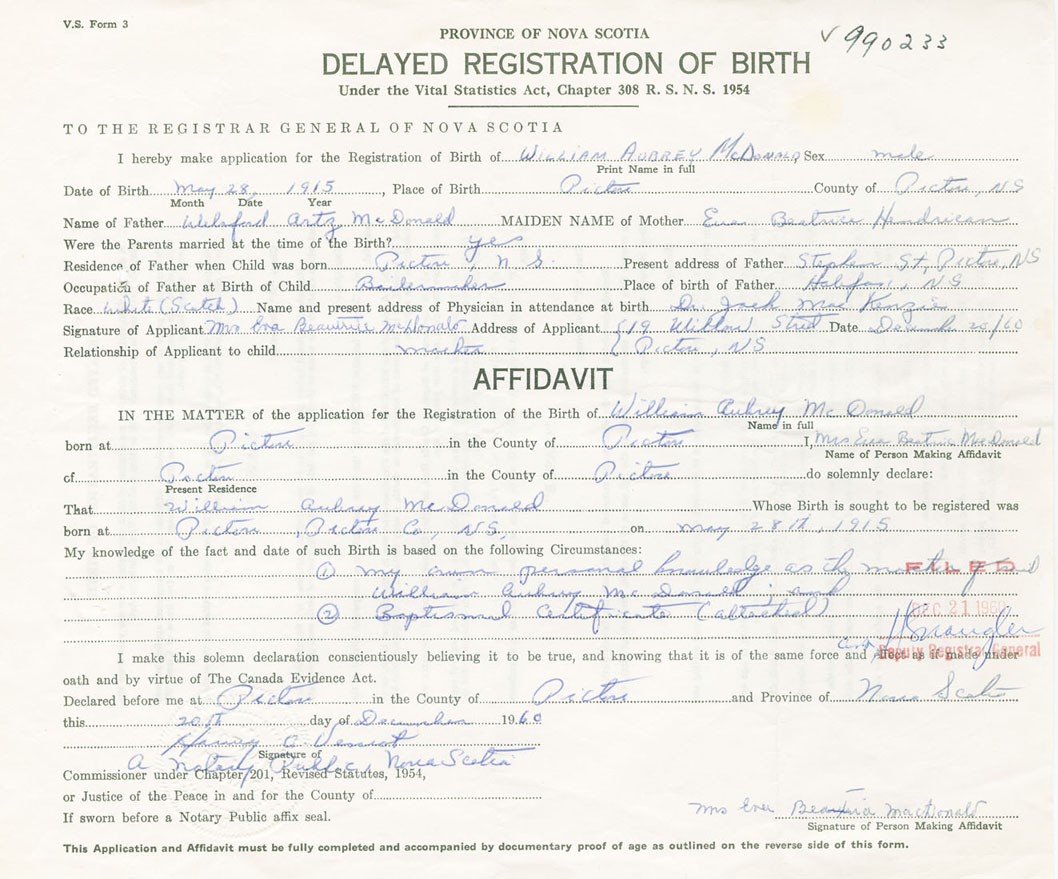 V.S. Form 3
PROVINCE OF NOVA SCOTIA
✓ 990233
DELAYED REGISTRATION OF BIRTH
Under the Vital Statistics Act, Chapter 308 R. S. N. S. 1954
TO THE REGISTRAR GENERAL OF NOVA SCOTIA
I hereby make application for the Registration of Birth of WILLIAM AUBREY McDONALD Sex male
Print Name in full
Date of Birth May 28, 1915, Place of Birth Pictou County of Pictou, NS
Month Date Year
Name of Father Welsford Artz McDonald MAIDEN NAME of Mother Eva Beatrice
Were the Parents married at the time of the Birth? yes
Residence of Father when Child was born Pictou, N S. Present address of Father Stephen St, Pictou, NS
Occupation of Father at Birth of Child Boilermaker Place of birth of Father Halifax, NS
Race White (Scotch) Name and present address of Physician in attendance at birth Dr. Jack MacKenzie
Signature of Applicant Mrs Eva McDonald Address of Applicant { 19 Willow Street Date December 20/60
Relationship of Applicant to child mother { Pictou, NS
AFFIDAVIT
IN THE MATTER of the application for the Registration of the Birth of William Aubrey McDonald
Name in full
born at Pictou in the County of Pictou I, Mrs Eva Beatrice MacDonald
Name of Person Making Affidavit
of Pictou in the County of Pictou do solemnly declare:
Present Residence
That William Aubrey McDonald Whose Birth is sought to be registered was
born at Pictou, Pictou Co, NS, on May 28th, 1915
My knowledge of the fact and date of such Birth is based on the following Circumstances:
① My own personal knowledge as the mother of said
FILED
William Aubrey McDonald; and
② Baptismal Certificate (attached)
DEC 21 1960
Deputy Registrar General
I make this solemn declaration conscientiously believing it to be true, and knowing that it is of the same force and effect as if made under
oath and by virtue of The Canada Evidence Act.
Declared before me at Pictou in the County of Pictou and Province of Nova Scotia
this 20th day of December 1960
Signature of
A Notary Public, Nova Scotia
Commissioner under Chapter 201, Revised Statutes, 1954,
or Justice of the Peace in and for the County of
Mrs Eva MacDonald
If sworn before a Notary Public affix seal.
Signature of Person Making Affidavit
This Application and Affidavit must be fully completed and accompanied by documentary proof of age as outlined on the reverse side of this form.